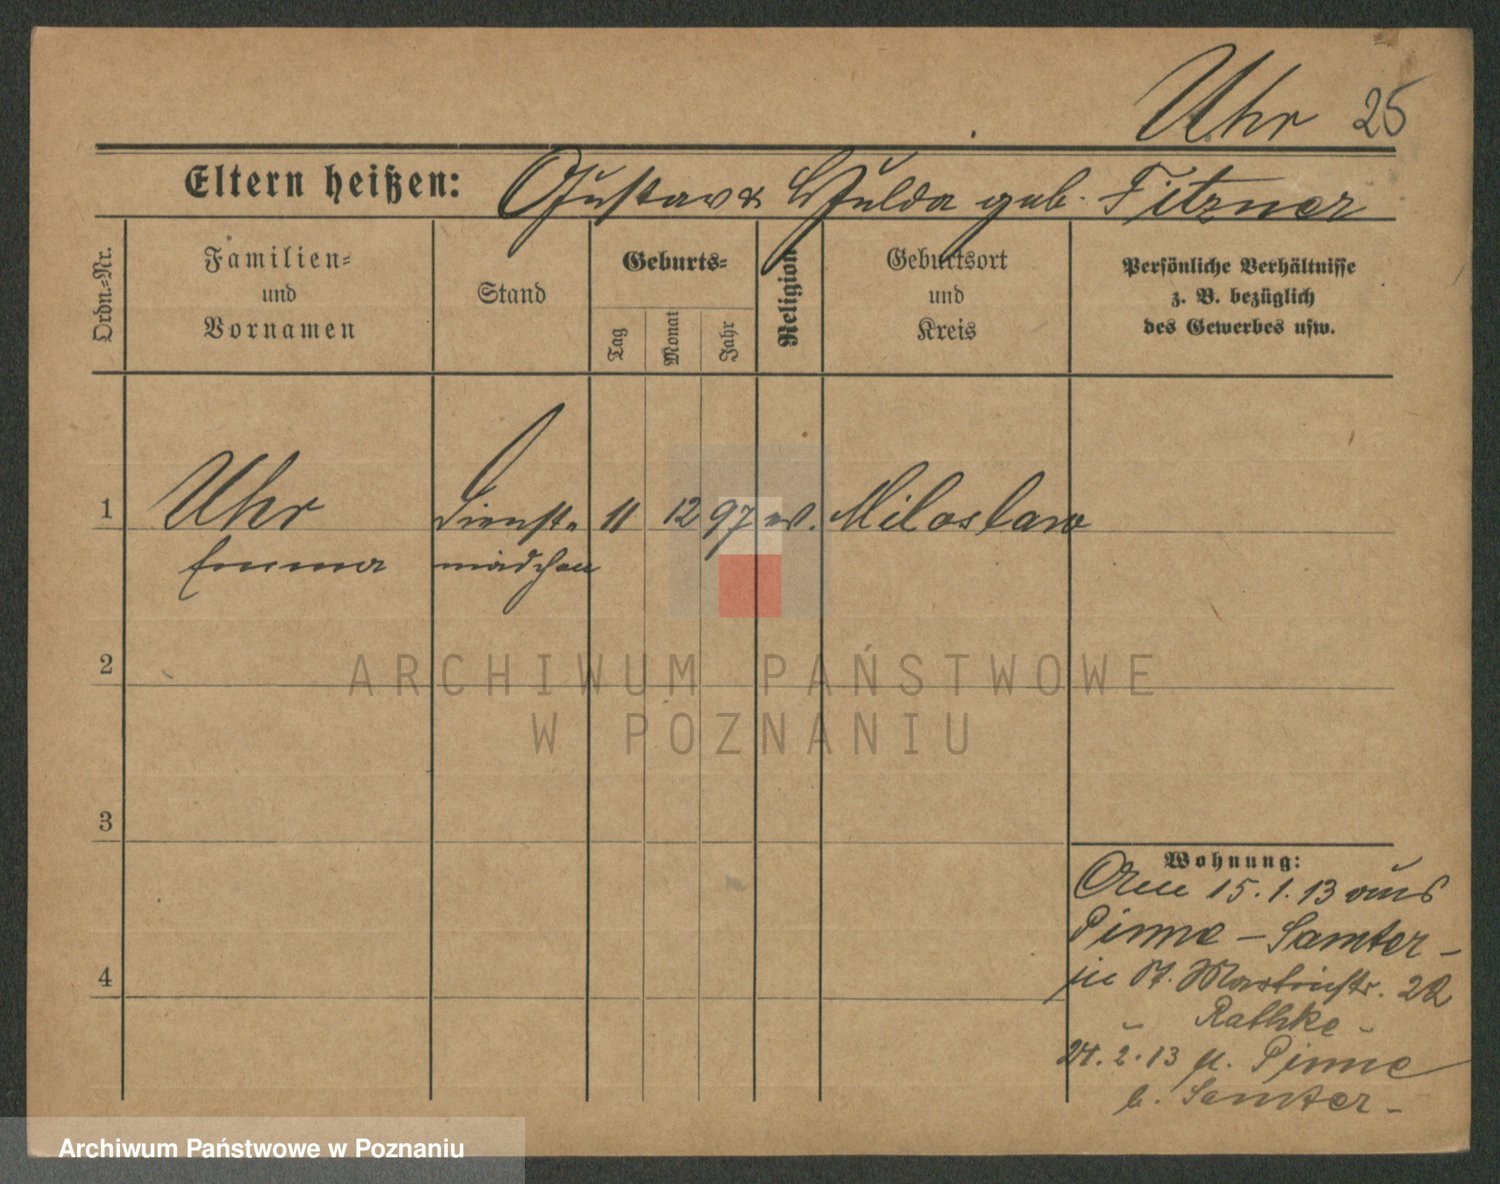 Uhr 25
Eltern heißen: Gustav & Hulda geb. Fitzner
Ordn.-Nr.
Familien=
und
Vornamen
Stand
Geburts=
Tag
Monat
Jahr
Religion
Geburtsort
und
Kreis
Persönliche Verhältnisse
z. B. bezüglich
des Gewerbes usw.
1 Uhr Dienst= 11 12 97 ev. Miloslaw
Emma mädchen
2
ARCHIWUM PAŃSTWOWE
W POZNANIU
3
Wohnung:
Am 15.1.13 aus
Pinne – Samter –
in St. Martinstr. 22
4
Rathke –
24.2.13 n. Pinne
b. Samter –
Archiwum Państwowe w Poznaniu